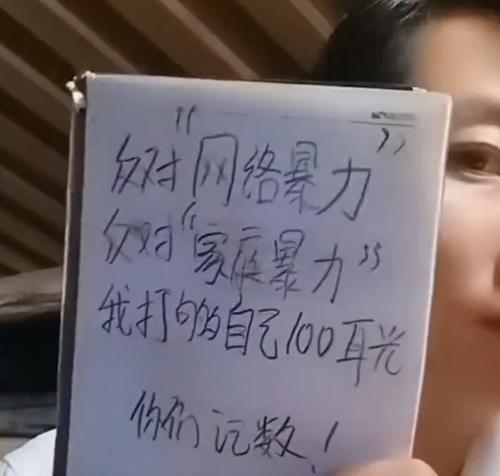 反对“网络暴力”
反对“家庭暴力”
我打够自己100耳光
你们记数！